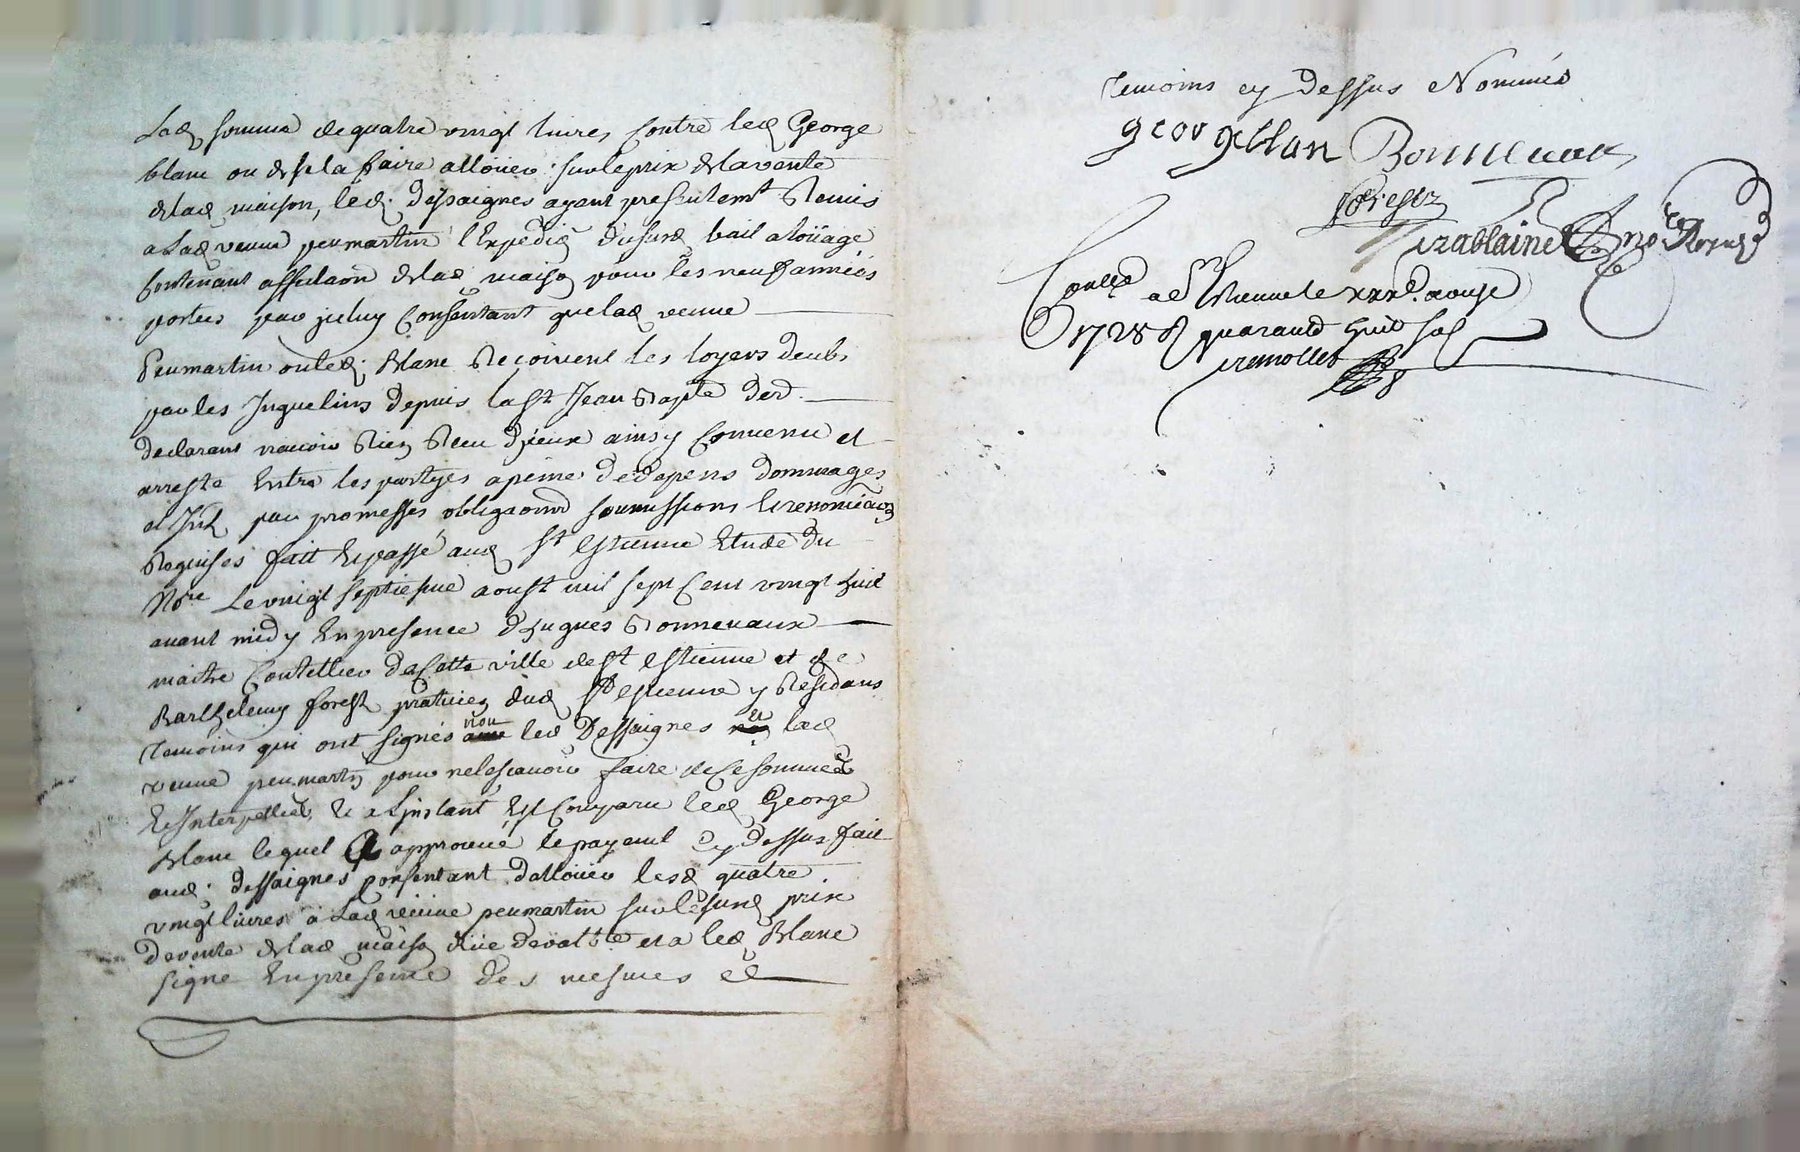 Lad somme de quatre vingt livres contre led George
blanc ou de se la faire allouer sur le prix de la vente
de lad maison, led. Dessaignes ayant presentemt Remis
a Lad veuve peumartin l'Expedié dususd bail a loüage
contenant assensaon de lad maison pour les neuf années
portées par jceluy Consentant que lad veuve
Peumartin ou led. Blanc Reçoivent les loyers deubs
par les Juquelins depuis la st Jean Bapte derr.
declarant n'avoir Rien Reeu d'jceux ainsy convenu et
arresté Entre les partyes a peine de depens dommages
et Jnt par promesses obligaons soumissions Et renonciaons
Requises fait Et passé aud st Estienne Etude du
Nore Le vingt septiesme aoust mil sept Cent vingt huit
avant midy En presence d'hugues Bonnevaux
maitre Coutellier de Cette ville de st Estienne et de
Barthelemy forest praticien dud st Estienne y Residans
Temoins qui ont signés non led Dessaignes et lad
veuve peumartin pour ne le scavoir faire de ce sommés
Et Interpellés, Et a L'jnstant Est Comparu led George
Blanc lequel a approuvé le payemt cy dessus fait
aud. Dessaignes consentant d'allouer lesd quatre
vingt livres a Lad veuve peumartin sur le susd prix
de vente de lad maison et a led Blanc
signé En presence des mesmes
Temoins cy Dessus Nommés
george blan Bonnevaux
forest
Tezablaine Nore Royal
Conlle a St Etienne le xxxe. aoust
1728 R quarante huit sols